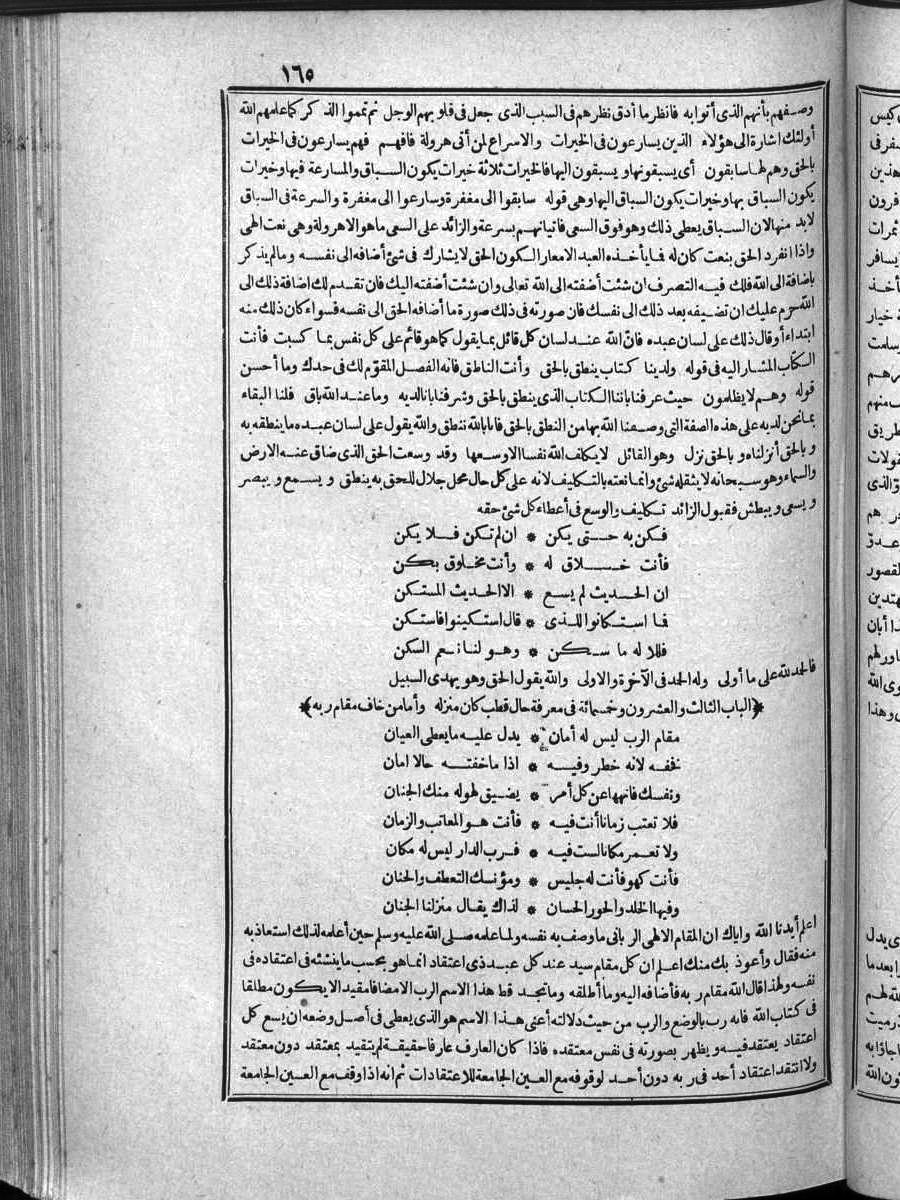 ١٦٥
وصفهم بأنهم الذى أتوا به فانظر ما أدق نظرهم فى السبب الذى جعل فى قلوبهم الوجل ثم تمموا الذكر كما علمهم الله
أولئك اشارة الى هؤلاء الذين يسارعون فى الخيرات والاسراع لمن أتى هرولة فافهم فهم يسارعون فى الخيرات
بالحق وهم لها سابقون أى يسبقونها ويسبقون اليها فالخيرات ثلاثة خيرات يكون السباق والمسارعة فيها وخيرات
يكون السباق بها وخيرات يكون السباق اليها وهى قوله سابقوا الى مغفرة وسارعوا الى مغفرة والسرعة فى السباق
لابد منها لان السباق يعطى ذلك وهو فوق السعى فاتيانهم بسرعة والزائد على السعى ما هو الا هرولة وهى نعت الهى
واذا انفرد الحق بنعت كان له فما يأخذه العبد الا معار الكون الحق لا يشارك فى شئ أضافه الى نفسه وما لم يذكر
باضافة الى الله فلك فيه التصرف ان شئت أضفته الى الله تعالى وان شئت أضفته اليك فان تقدم لك اضافة ذلك الى
الله حرم عليك ان تضيفه بعد ذلك الى نفسك فان صورته فى ذلك صورة ما أضافه الحق الى نفسه فسواء كان ذلك منه
ابتداء أو قال ذلك على لسان عبده فان الله عند لسان كل قائل بما يقول كما هو قائم على كل نفس بما كسبت فأنت
الكتاب المشار اليه فى قوله ولدينا كتاب ينطق بالحق وأنت الناطق فانه الفصل المقوّم لك فى حدك وما أحسن
قوله وهم لا يظلمون حيث عرفنا باننا الكتاب الذى ينطق بالحق وشرفنا بانا لديه وما عند الله باق فلنا البقاء
بما نحن لديه على هذه الصفة التى وصفنا الله بها من النطق بالحق فانا بالله ننطق والله يقول على لسان عبده ما ينطقه به
وبالحق أنزلناه وبالحق نزل وهو القائل لا يكلف الله نفسا الا وسعها وقد وسعت الحق الذى ضاق عنه الارض
والسماء وهو سبحانه لا يثقله شئ وانما نعته بالتكليف لانه على كل حال محل جلال للحق به ينطق ويسمع ويبصر
ويسعى ويبطش فقبول الزائد تكليف والوسع فى أعطاء كل شئ حقه
فكن به حتى يكن * ان لم تكن فلا يكن
فأنت خلاق له * وأنت مخلوق بكن
ان الحديث لم يسع * الا الحديث المستكن
فما استكانوا للذى * قال استكينوا فاستكن
فللا له ما سكن * وهو لنا نعم السكن
فالحمد لله على ما أولى وله الحمد فى الآخرة والاولى والله يقول الحق وهو يهدى السبيل
﴿الباب الثالث والعشرون وخمسمائة فى معرفة حال قطب كان منزله وأما من خاف مقام ربه﴾
مقام الرب ليس له أمان * يدل عليه ما يعطى العيان
نخفه لانه خطر وفيه * اذا ما خفته حالا امان
ونفسك فانهها عن كل أمر * يضيق لهوله منك الجنان
فلا تعتب زمانا أنت فيه * فأنت هو المعاتب والزمان
ولا تعمر مكانا لست فيه * فرب الدار ليس له مكان
فأنت كهو فأنت له جليس * ومؤنسك التعطف والحنان
وفيها الخلد والحور الحسان * لذاك يقال منزلنا الجنان
اعلم أيدنا الله واياك ان المقام الالهى الربانى ما وصف به نفسه ولما علمه صلى الله عليه وسلم حين أعلمه لذلك استعاذ به
منه فقال وأعوذ بك منك اعلم ان كل مقام سيد عند كل عبد ذى اعتقاد انما هو بحسب ما ينشئه فى اعتقاده فى
نفسه ولهذا قال الله مقام ربه فأضافه اليه وما أطلقه وما تجد قط هذا الاسم الرب الا مضافا مقيد الا يكون مطلقا
فى كتاب الله فانه رب بالوضع والرب من حيث دلالته أعنى هذا الاسم هو الذى يعطى فى أصل وضعه ان يسع كل
اعتقاد يعتقد فيه ويظهر بصورته فى نفس معتقده فاذا كان العارف عارفا حقيقة لم يتقيد بمعتقد دون معتقد
ولا انتقد اعتقاد أحد فى ربه دون أحد لوقوفه مع العين الجامعة للاعتقادات ثم انه اذا وقف مع العين الجامعة